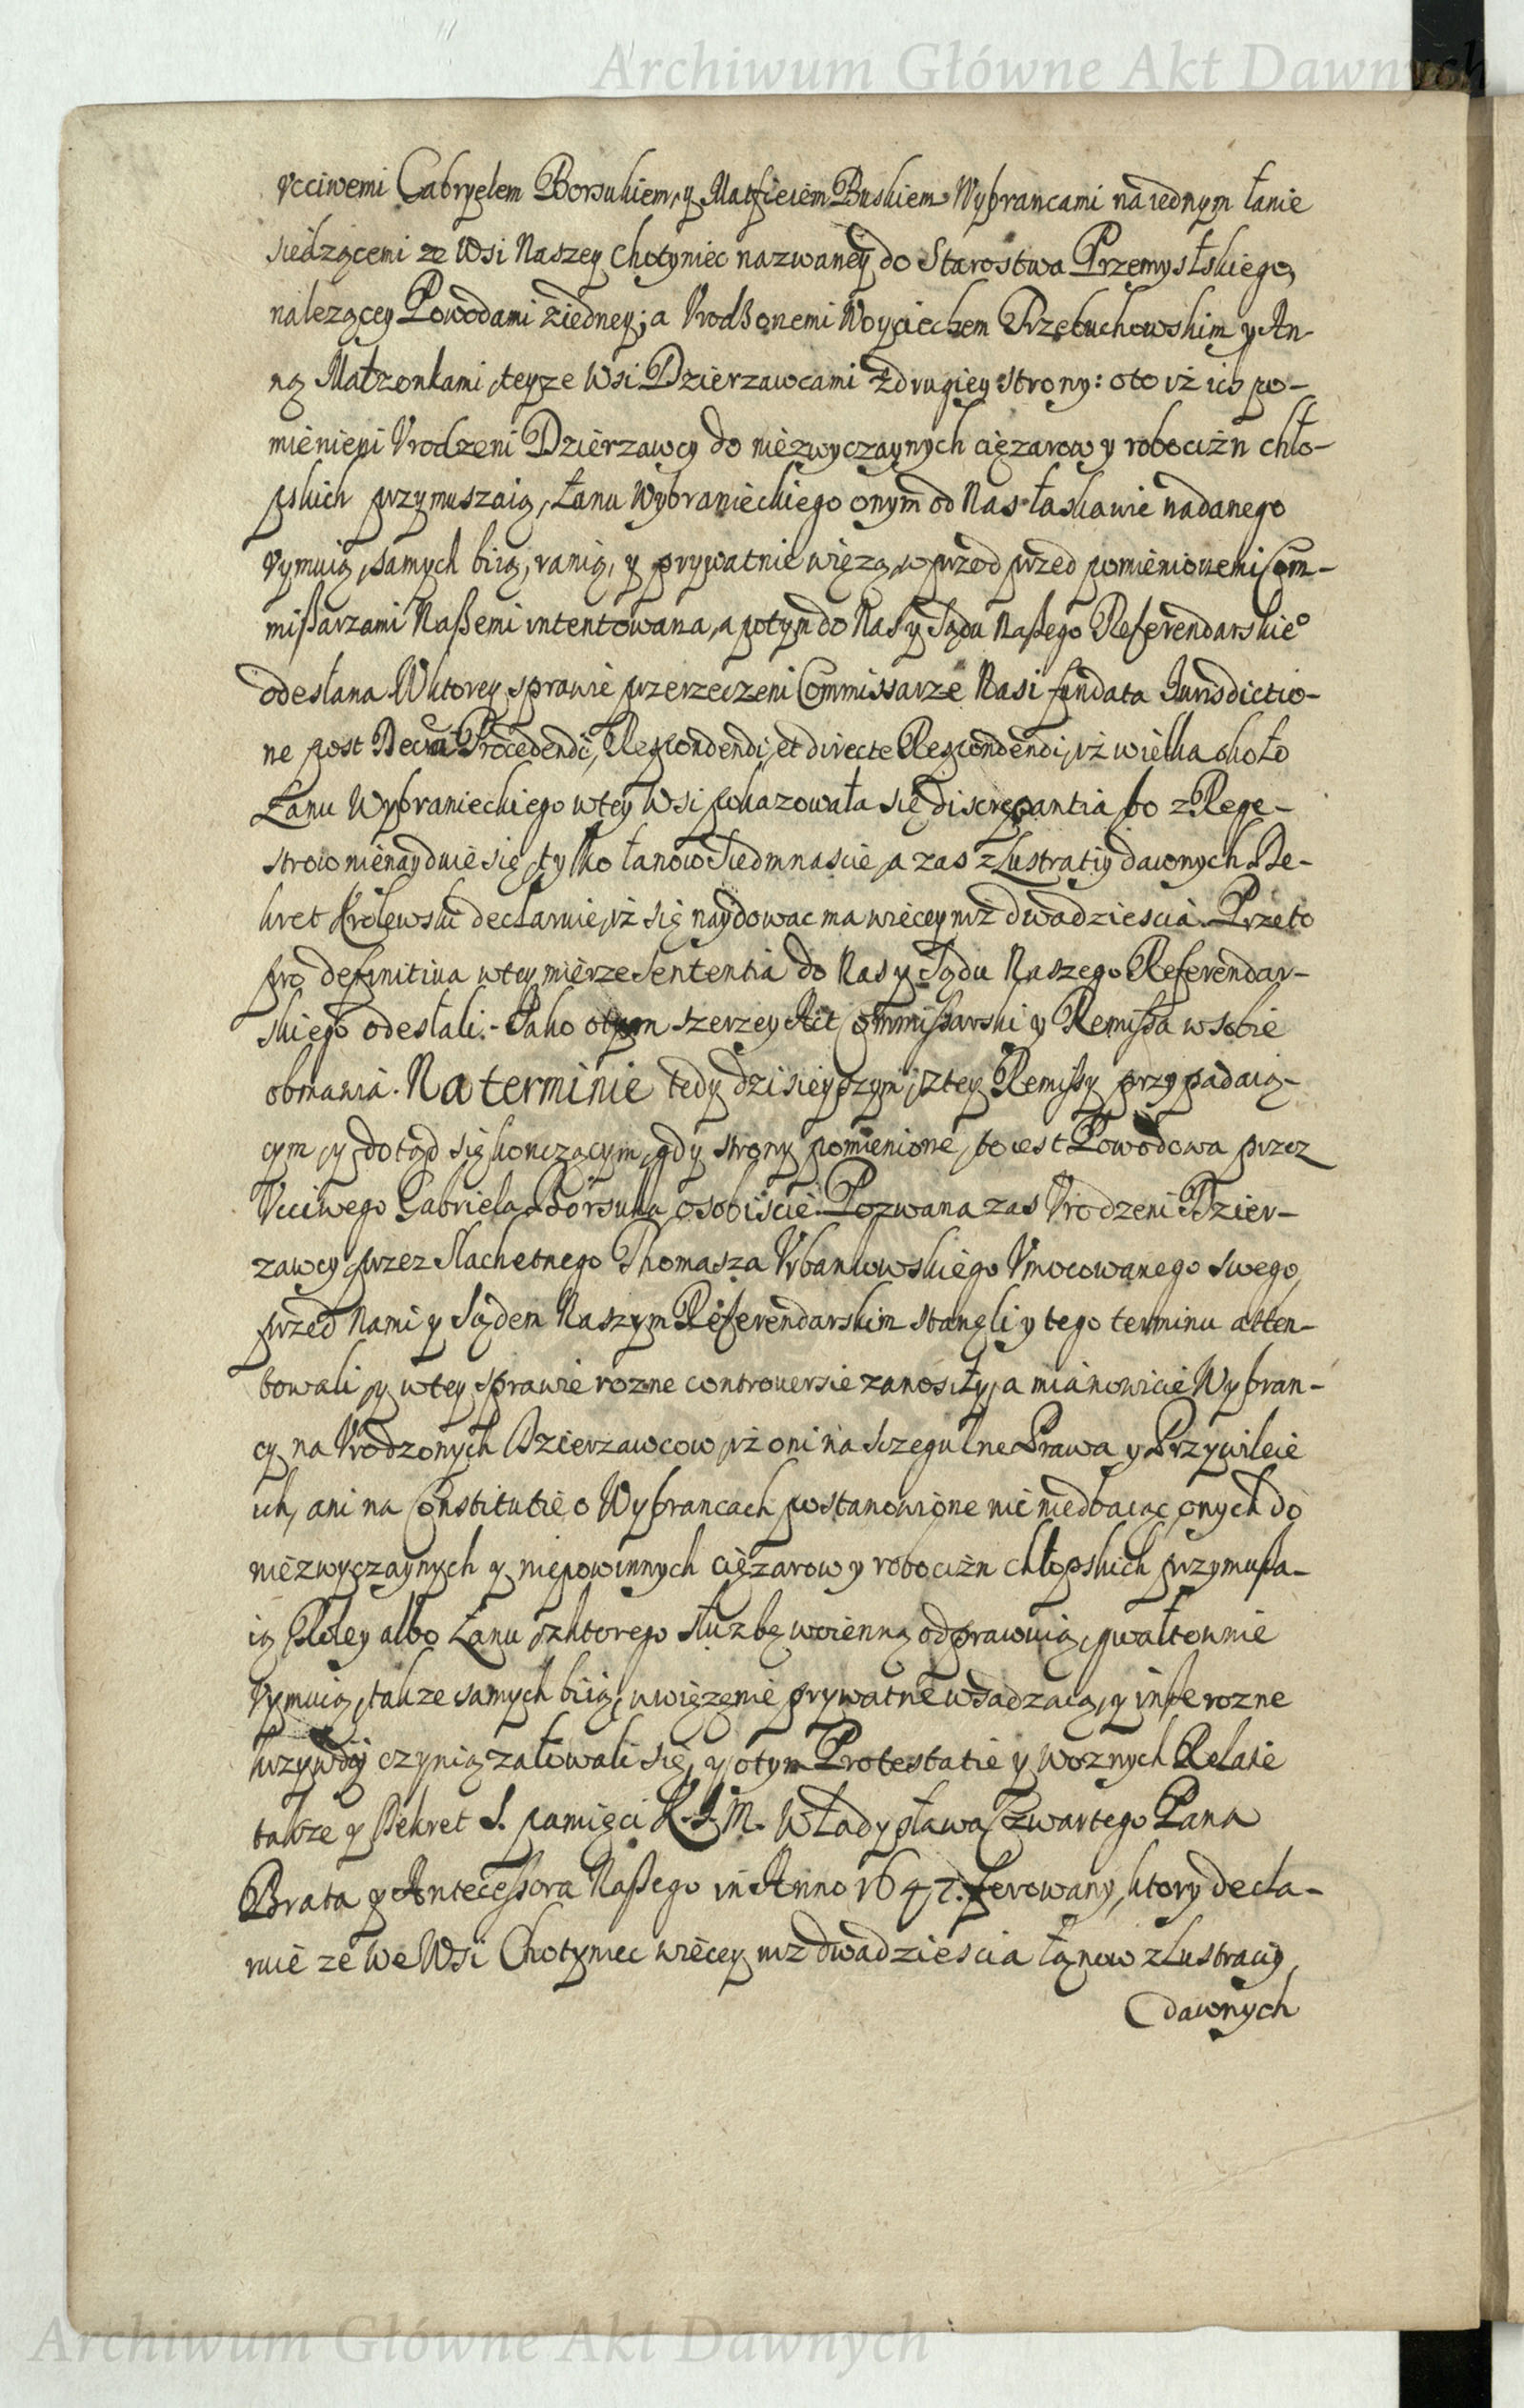 Archiwum Główne Akt Dawnych
Vcciwemi Gabryelem Borsukiem, y Matfieiem Buskiem Wybrancami na iednym łanie
siedzącemi ze Wsi Naszey Chotyniec nazwaney do Starostwa Przemyslskiego
nalezącey Powodami ziedney; a Vrodzonemi Woyciechem Przetuchowskim y An-
ną Małzonkami, teyze Wsi Dzierzawcami zdrugiey strony: oto iż ich po-
mienieni Vrodzeni Dzierzawcy do niezwyczaynych cięzarow y robociżn chło-
pskich przymuszaią, Łanu Wybranieckiego onym od Nas łaskawie nadanego
vymuią, samych biią, ranią, y prywatnie więzą, wprzod przed pomienionemi Com-
mißarzami Naßemi intentowana, a potym do Nas y Sądu Naßego Referendarskie°
odesłana. Wktorey sprawie przerzeczeni Commissarze Nasi fundata Iurisdictio-
ne post Decreta Procedendi, Respondendi, et directe Respondendi, iż wielka około
Łanu Wybranieckiego wtey Wsi pokazowała się discrepantia, bo z Rege-
strow nienayduie się, tylko łanow Siedmnascie, a zas z Lustratiy dawnych De-
kret Krolewski declaruie, iż się naydowac ma więcey niz dwadziescia. Przeto
pro definitiua wtey mierze Sententia do Nas y Sądu Naszego Referendar-
skiego odesłali. - Iako otym szerzey Act Commißarski y Remißa wsobie
obmawia. Na terminie tedy dzisieyszym, z tey Remißy przypadaią-
cym, y dotąd się konczącym, gdy strony pomienione, to iest Powodowa przez
Vcciwego Gabriela Borsuka osobiscie. Pozwana zas Vrodzeni Dzier-
zawcy przez Slachetnego Thomasza Vrbankowskiego Vmocowanego swego,
przed Nami y Sądem Naszym Referendarskim stanęli y tego terminu atten-
towali, y wtey sprawie rozne controuersie zanosiły, a mianowicie Wybran-
cy na Vrodzonych Dzierzawcow, iż oni na sczegulne Prawa y Przywileie
ich, ani na Constitutie o Wybrancach postanowione nic niedbaiąc, onych do
niezwyczaynych y niepowinnych cięzarow y robociżn chłopskich przymußa-
ią, Roley albo Łanu, zktorego słuzbę woienną odprawuią, gwałtownie
vymuią, takze samych biią, wwięzenie prywatne wsadzaią, y inße rozne
krzywdy czynią załowali się, y otym Protestatie y Woznych Relatie
takze y Dekret S. pamięci K. I. M. Władysława Czwartego Pana
Brata y Antecessora Naßego in Anno 1647. ferowany, ktory decla-
ruie ze we Wsi Chotyniec więcey niz dwadziescia łanow z Lustraciy
dawnych
Archiwum Główne Akt Dawnych